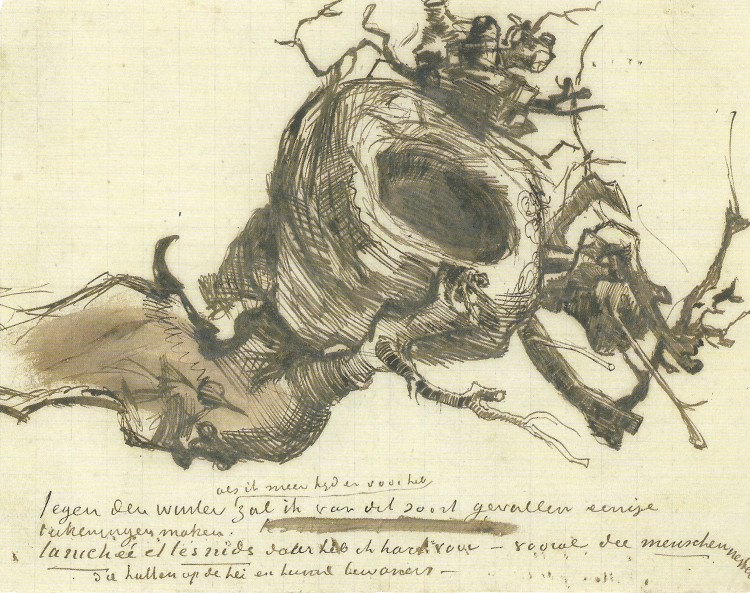 als ik meer tyd er voor heb
Tegen den winter zal ik van dit soort gevallen eenige
teekeningen maken.
La nichée et les nids daar heb ik hart voor – vooral die menschennesten
die hutten op de hei en hunne bewoners –